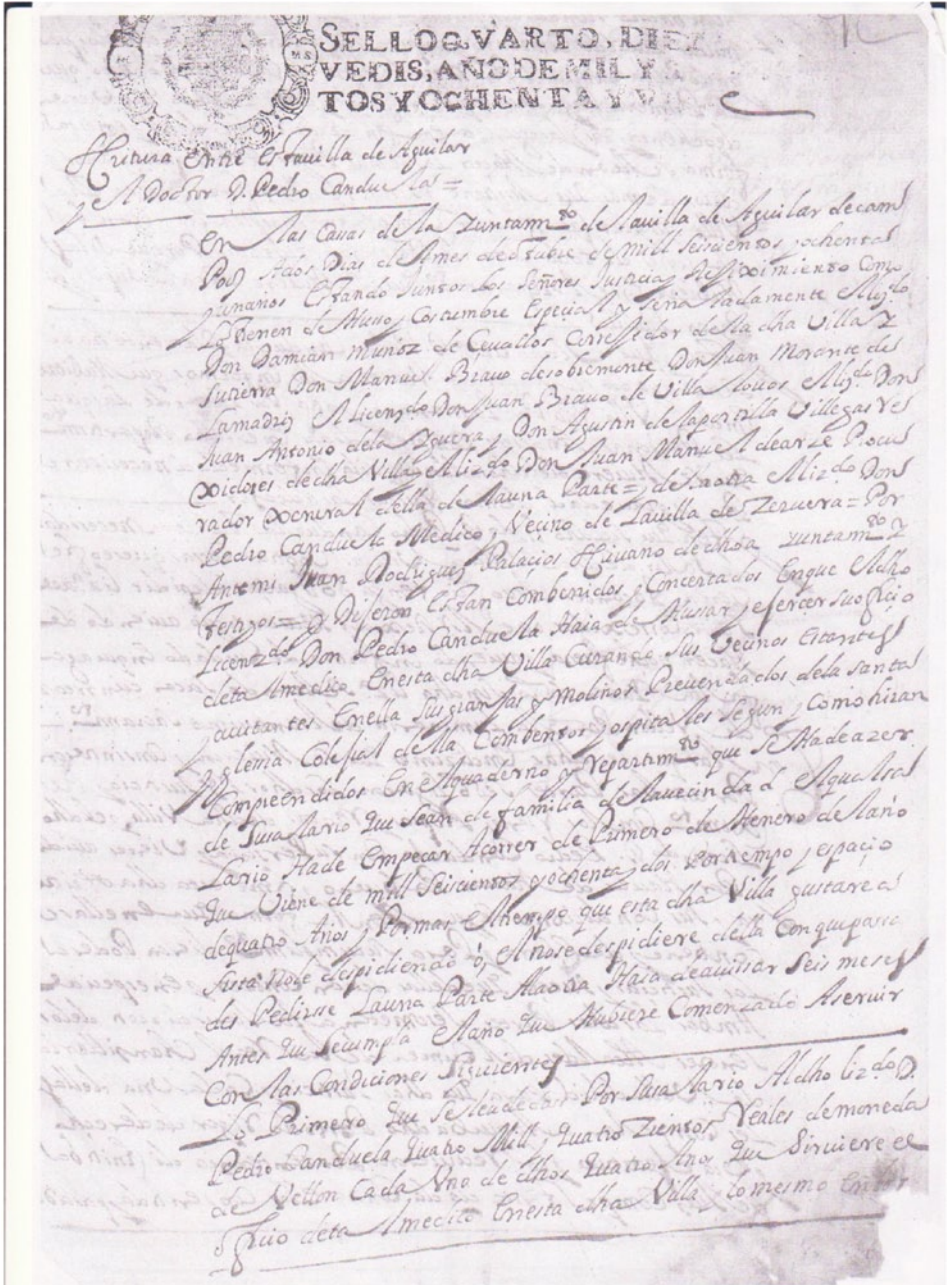 SELLO QVARTO, DIEZ
VEDIS, AÑO DE MIL Y
TOS Y OCHENTA Y
Escritura entre esta uilla de Aguilar
y el Doctor D. Pedro Canduela =
en las Cassas de la Zuntammto de la uilla de Aguilar de cam
Poo A dos Dias del mes de otubre de mill Seiscientos y ochenta
y un anos Estando Juntos los Señores Justicia y Reximiento Como
lo tienen de Husso y Costumbre Especial y señaladamente el lizdo
Don Damian Muñoz de Ceuallos Correxidor desta dha Villa y
su tierra Don Manuel Brauo de sobiemente Don Juan Morante de
Lamadriz el licenzdo Don Juan Brauo de Villalouos el lizdo Don
Juan Antonio de la Yguera y Don Agustin de la portilla Villegas Res
xidores de dha Villa y el lizdo Don Juan Manuel de arze Procu
rador xeneral della de la una Parte = y de la otra el lizdo Don
Pedro Canduela Medico, Vecino de la uilla de Zeruera = Por
Antemi Juan Rodriguez Palacios Escriuano de dho zuntammto y
testigos = y Dijeron Estan Combenidos y Concertados En que el dho
Licenzdo Don Pedro Canduela Haia de Hussar y ejercer su ofiçio
de tal medico En esta dha Villa Curando Sus Vecinos Estantes
y auitantes En ella Sus granjas y molinos Preuendados de la santa
yglesia Colejial della Combentos y ospitales segun y Como hiran
Compreendidos En el quaderno y repartimto que Se Ha de azer
de su salario que sean de familia de la uecindad el que el sa
lario Ha de Empeçar A correr de Primero de Henero del año
que Viene de mill Seiscientos y ochenta y dos Por tiempo y espaçio
de quatro Años y Por mas el tiempo que esta dha Villa gustare
no le despidiendo ô, el no se despidiere della Con que para
des Pedirse La una Parte A la otra Haia de auissar Seis meses
Antes que Se cumpla el año que Hubiere Comenzado A seruir
Con las Condiciones siguientes
Lo Primero que se le a de dar Por su salario Al dho lizdo D.
Pedro Canduela quatro Mill y quatro Zientos Reales de moneda
de Vellon Cada Vno de dhos quatro Anos que Siruiere el
ofiçio de tal medico En esta dha Villa lo mesmo En